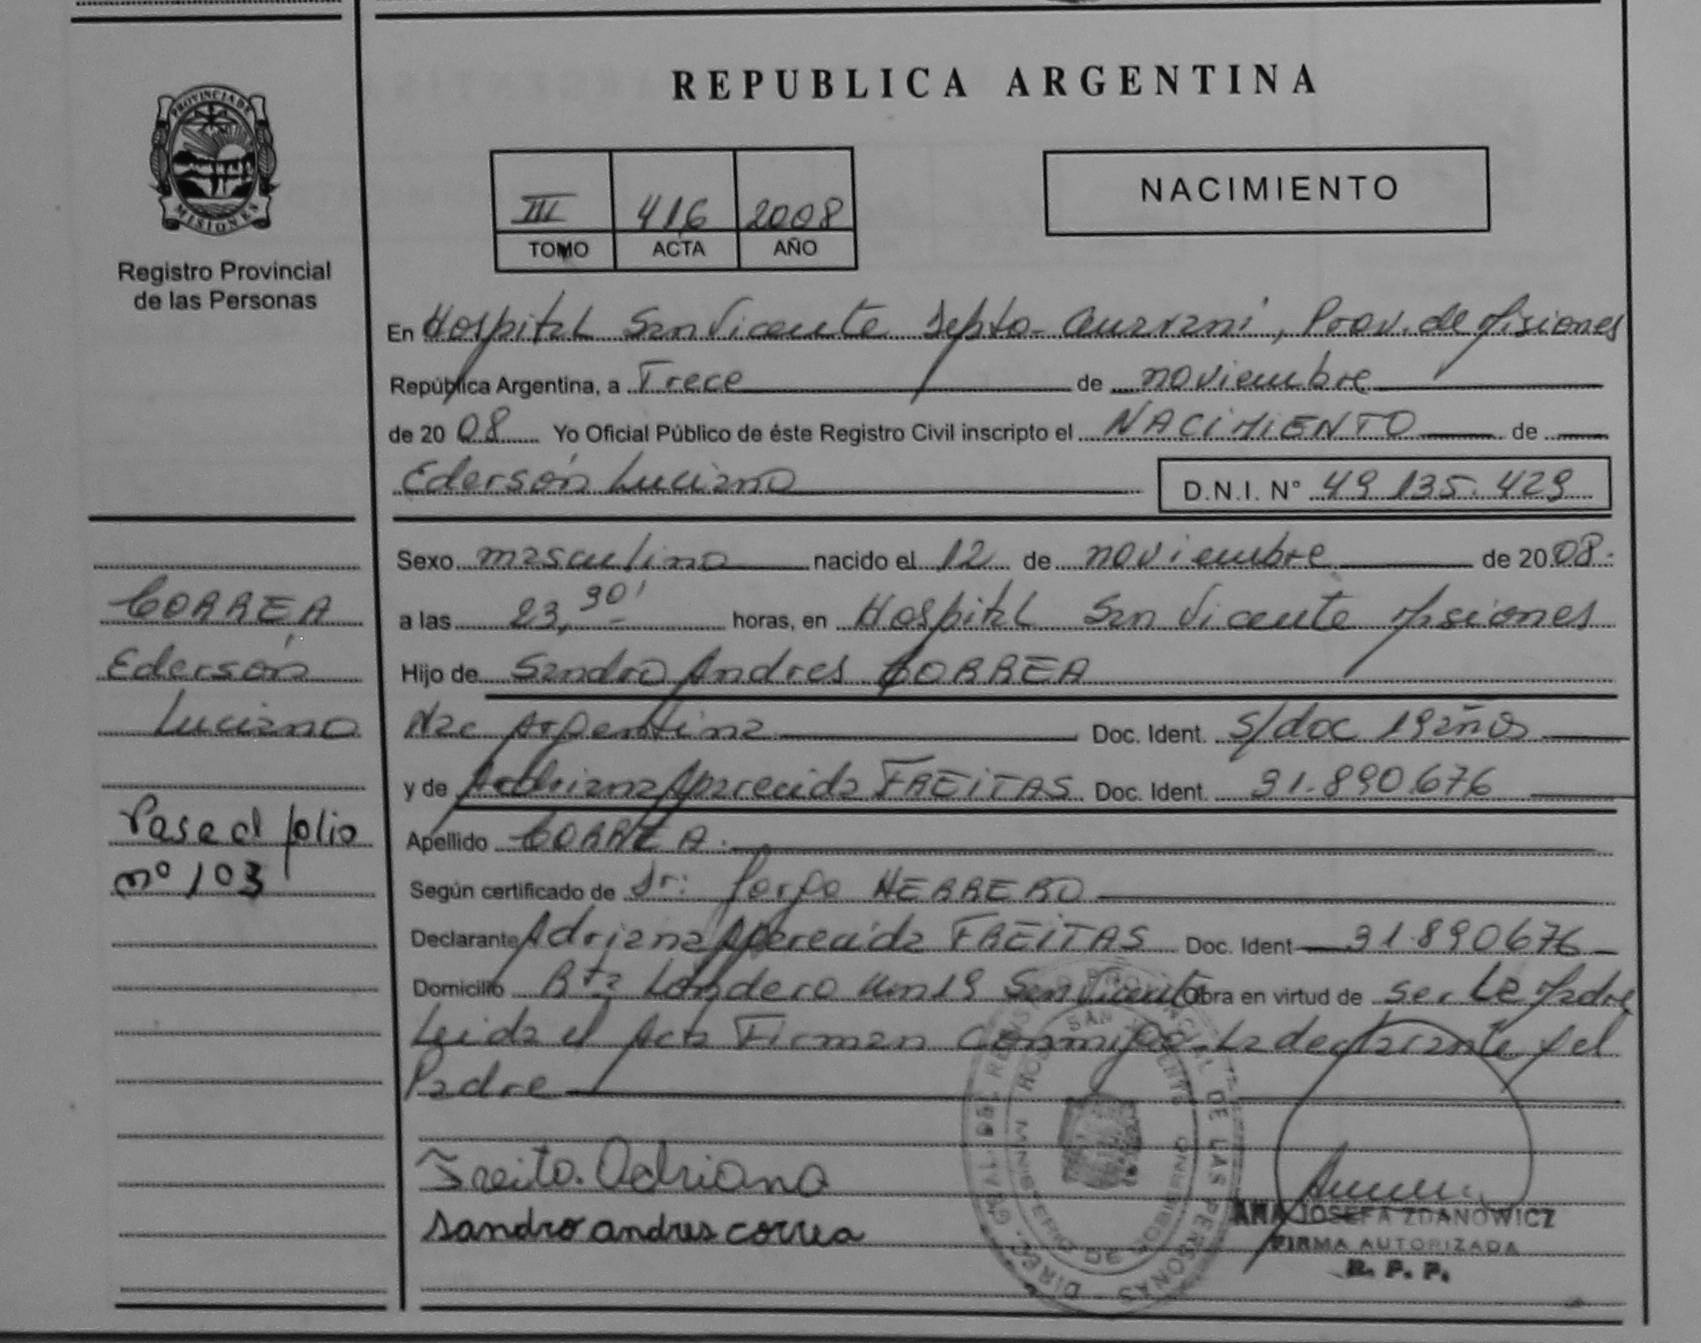 REPUBLICA ARGENTINA
PROVINCIA DE
MISIONES
Registro Provincial
de las Personas
III 416 2008
TOMO ACTA AÑO
NACIMIENTO
En Hospital San Vicente Depto- Guarani, Prov. de Misiones
República Argentina, a Trece de noviembre
de 20 08 Yo Oficial Público de éste Registro Civil inscripto el NACIMIENTO de
Ederson Luciano D.N.I. N° 49 135. 429
Sexo masculino nacido el 12 de noviembre de 20 08.
a las 23,30' horas, en Hospital San Vicente Misiones
Hijo de Sandro Andres CORREA
Nac Argentina Doc. Ident. s/doc 19 años
y de Adriana Aparecida FREITAS Doc. Ident. 31.890.676
Apellido CORREA.
Según certificado de Dr: Jorge HERRERO
Declarante Adriana Aparecida FREITAS Doc. Ident 31.890676
Domicilio Bta Londero Km 19 San Vicente Obra en virtud de ser la Madre
Leida el Acta Firman Conmigo La declarante y el
Padre
CORREA
Ederson
Luciano
Pase al folio
nº 103
Freita. Adriana
sandro andres correa
DIREC. GRAL. DEL REGISTRO PROVINCIAL DE LAS PERSONAS
SAN VICENTE
MINISTERIO DE
ANA JOSEFA ZDANOWICZ
FIRMA AUTORIZADA
R. P. P.